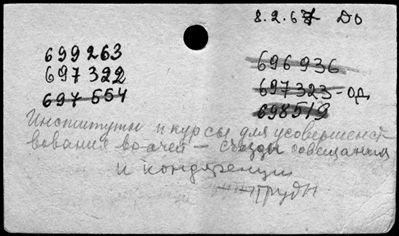 8.2.67 До
699263
697322
697554
696936
697323-од
698519
Институты и курсы для усовершенст
вования врачей – съезды совещания
и конференции
труды